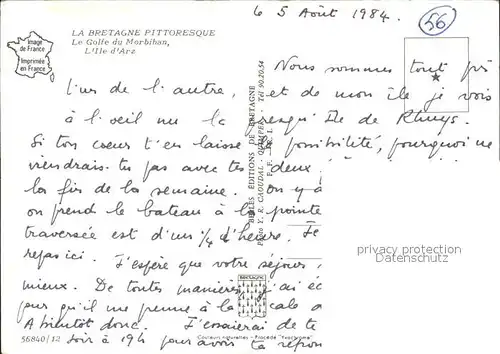 le 5 Août 1984.
56
LA BRETAGNE PITTORESQUE
Le Golfe du Morbihan,
L'Ile d'Arz
Image
de France
Imprimée
en France
Nous sommes tout près
l'un de l'autre, et de mon île je vois
à l'oeil nu la presqu'Ile de Rhuys.
Si ton coeur t'en laisse la possibilité, pourquoi ne
viendrais-tu pas avec tes deux
la fin de la semaine. on y a
on prend le bateau à la pointe
traversée est d'un 1/4 d'heure. Je
repas ici. J'espère que votre séjour
mieux. De toutes manières, j'ai
pour qu'il me prenne à la cale
A bientôt donc. J'essaierai de te
soir à 19h pour avoir ta répon
BELLES ÉDITIONS DE BRETAGNE
Photo Y. R. CAOUDAL - QUIMPER - Tél 90.20.54
BRETAGNE
56840/12
Couleurs naturelles - Procédé "Yvochrome"
privacy protection
CARTORUM.FR